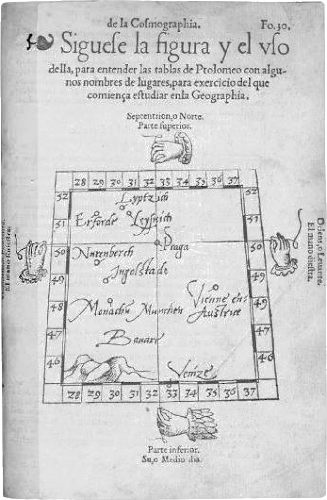 de la Cosmographia. Fo.30.
Siguese la figura y el vso
della, para entender las tablas de Ptolomeo con algu-
nos nombres de lugares, para exercicio del que
comiença estudiar enla Geographia.
Septentrion, o Norte.
Parte superior.
28 29 30 31 32 33 34 35 36 37
52 52
51 51
50 50
49 49
48 48
47 47
46 46
Lyptzich
Erforde Leypsich
Praga
Nurenberch
Ingolstade
Vienne en
Monachū Munchen Austrice
Bauare
Venize
28 29 30 31 32 33 34 35 36 37
Oriens, o Leuante.
El mano diestra.
El mano siniestra.
Parte inferior.
Su, o Medio dia.